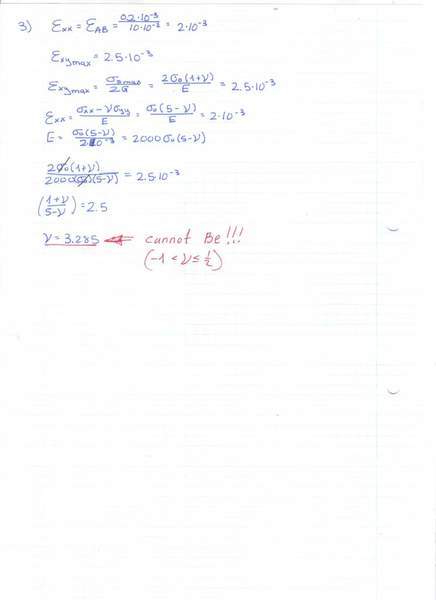 3) εxx = εAB = 0.2·10⁻³/10·10⁻³ = 2·10⁻³
εxymax = 2.5·10⁻³
εxymax = σxmax/2G = 2σ₀(1+ν)/E = 2.5·10⁻³
εxx = σxx-νσyy/E = σ₀(5-ν)/E = 2·10⁻³
E = σ₀(5-ν)/2·10⁻³ = 2000σ₀(5-ν)
2σ₀(1+ν)/2000σ₀(5-ν) = 2.5·10⁻³
(1+ν/5-ν) = 2.5
ν = 3.285 ⇐ cannot Be!!!
(-1 < ν ≤ 1/2)